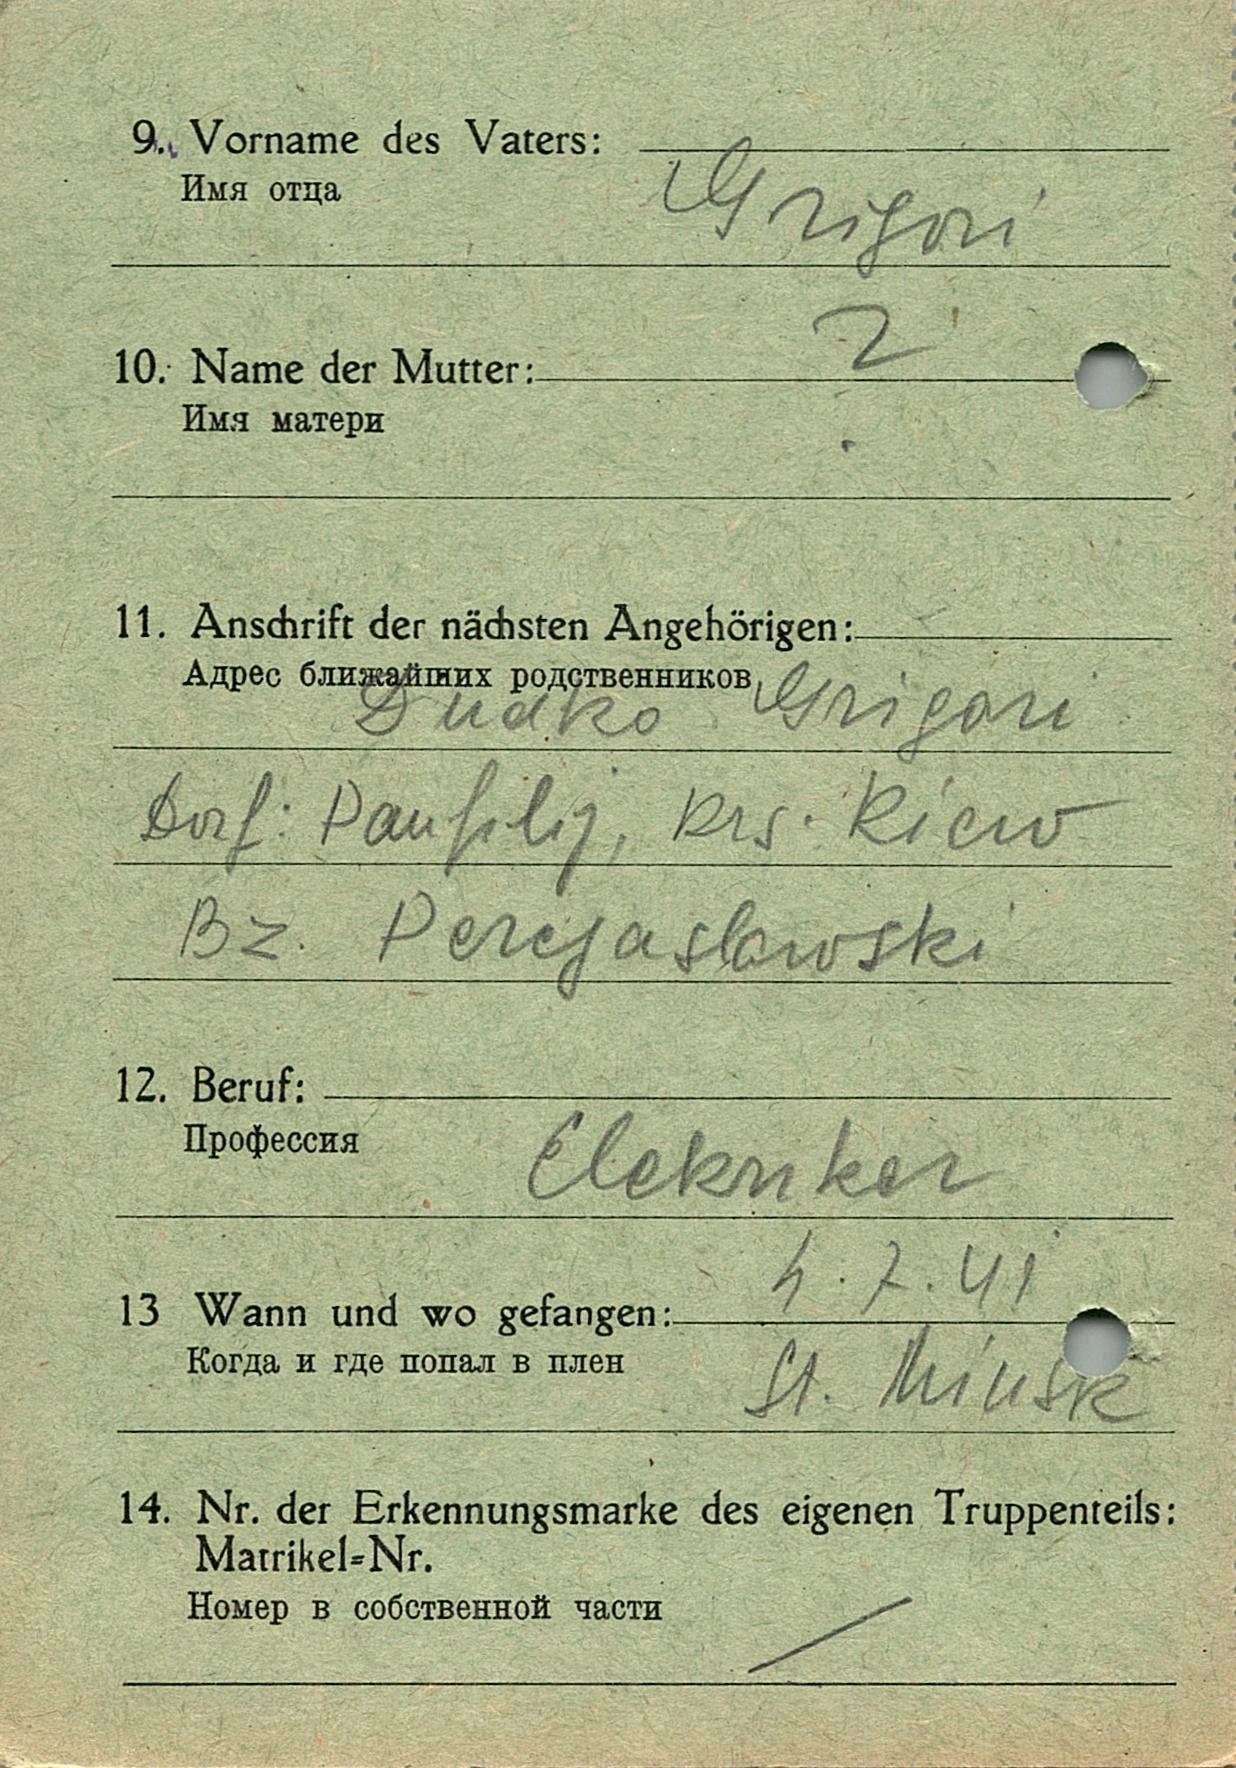 9. Vorname des Vaters:
Имя отца
Grigori
10. Name der Mutter: ?
Имя матери
11. Anschrift der nächsten Angehörigen:
Адрес ближайших родственников
Dudko Grigori
Dorf: Panfilij, Krs. Kiew
Bz. Perejaslowski
12. Beruf:
Профессия
Elektriker
4.7.41
13 Wann und wo gefangen:
Когда и где попал в плен
St. Minsk
14. Nr. der Erkennungsmarke des eigenen Truppenteils:
Matrikel-Nr.
Номер в собственной части